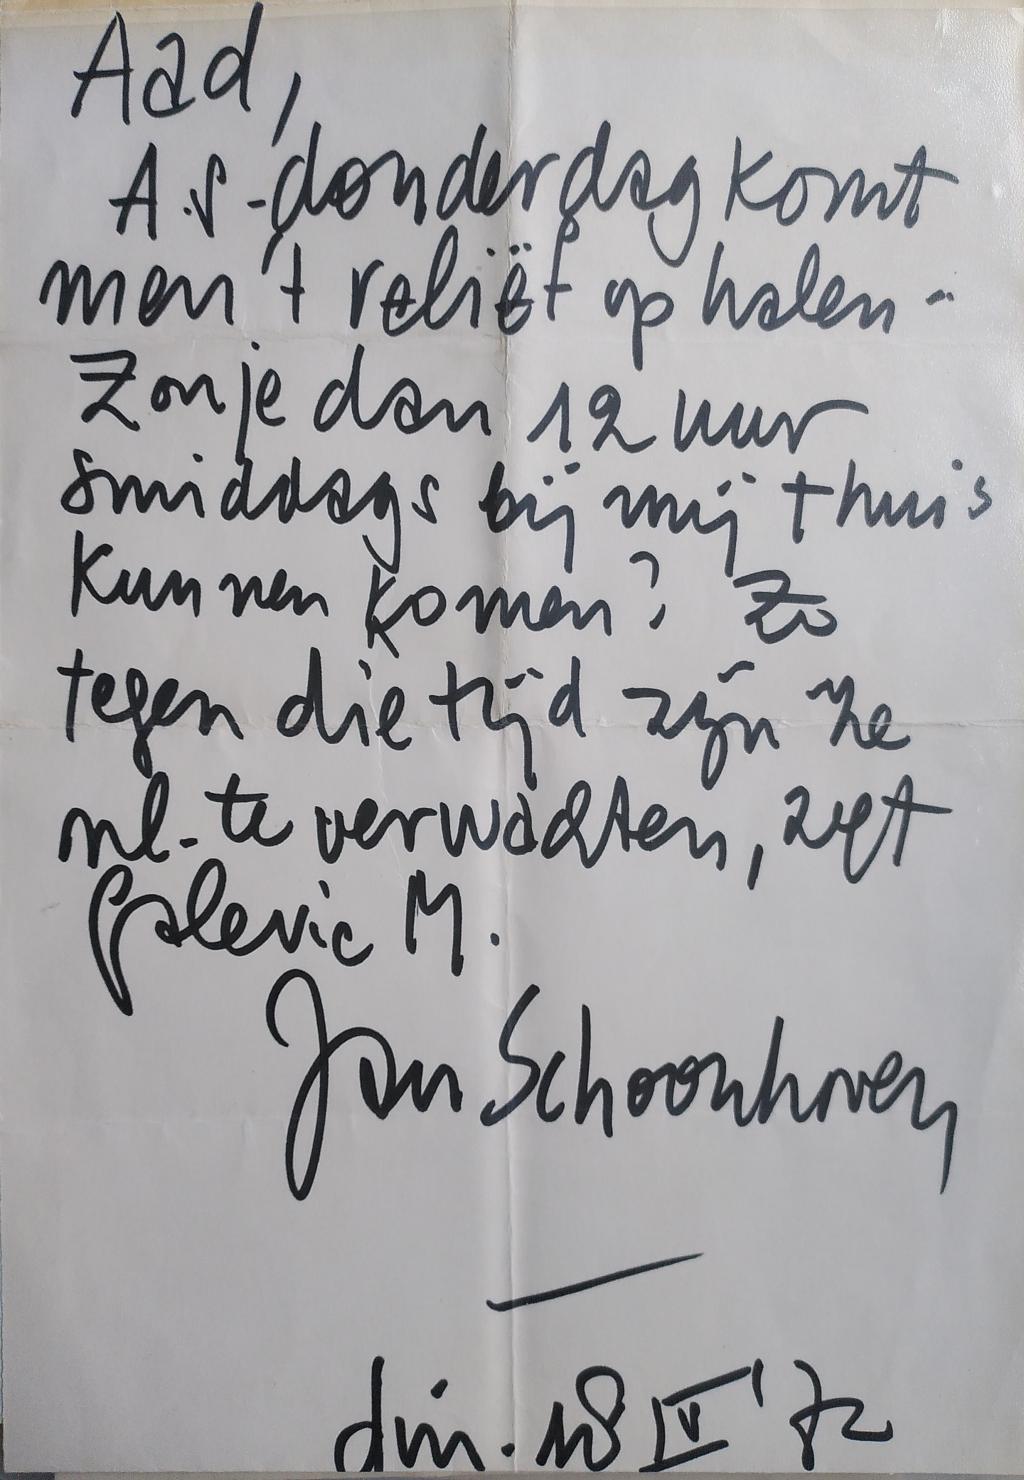 Aad,
A.s. donderdag komt
men 't reliëf ophalen -
Zou je dan 12 uur
smiddags bij mij thuis
kunnen komen? Zo
tegen die tijd zijn ze
nl. te verwachten, zegt
Galerie M.
Jan Schoonhoven
din. 18 IV '72